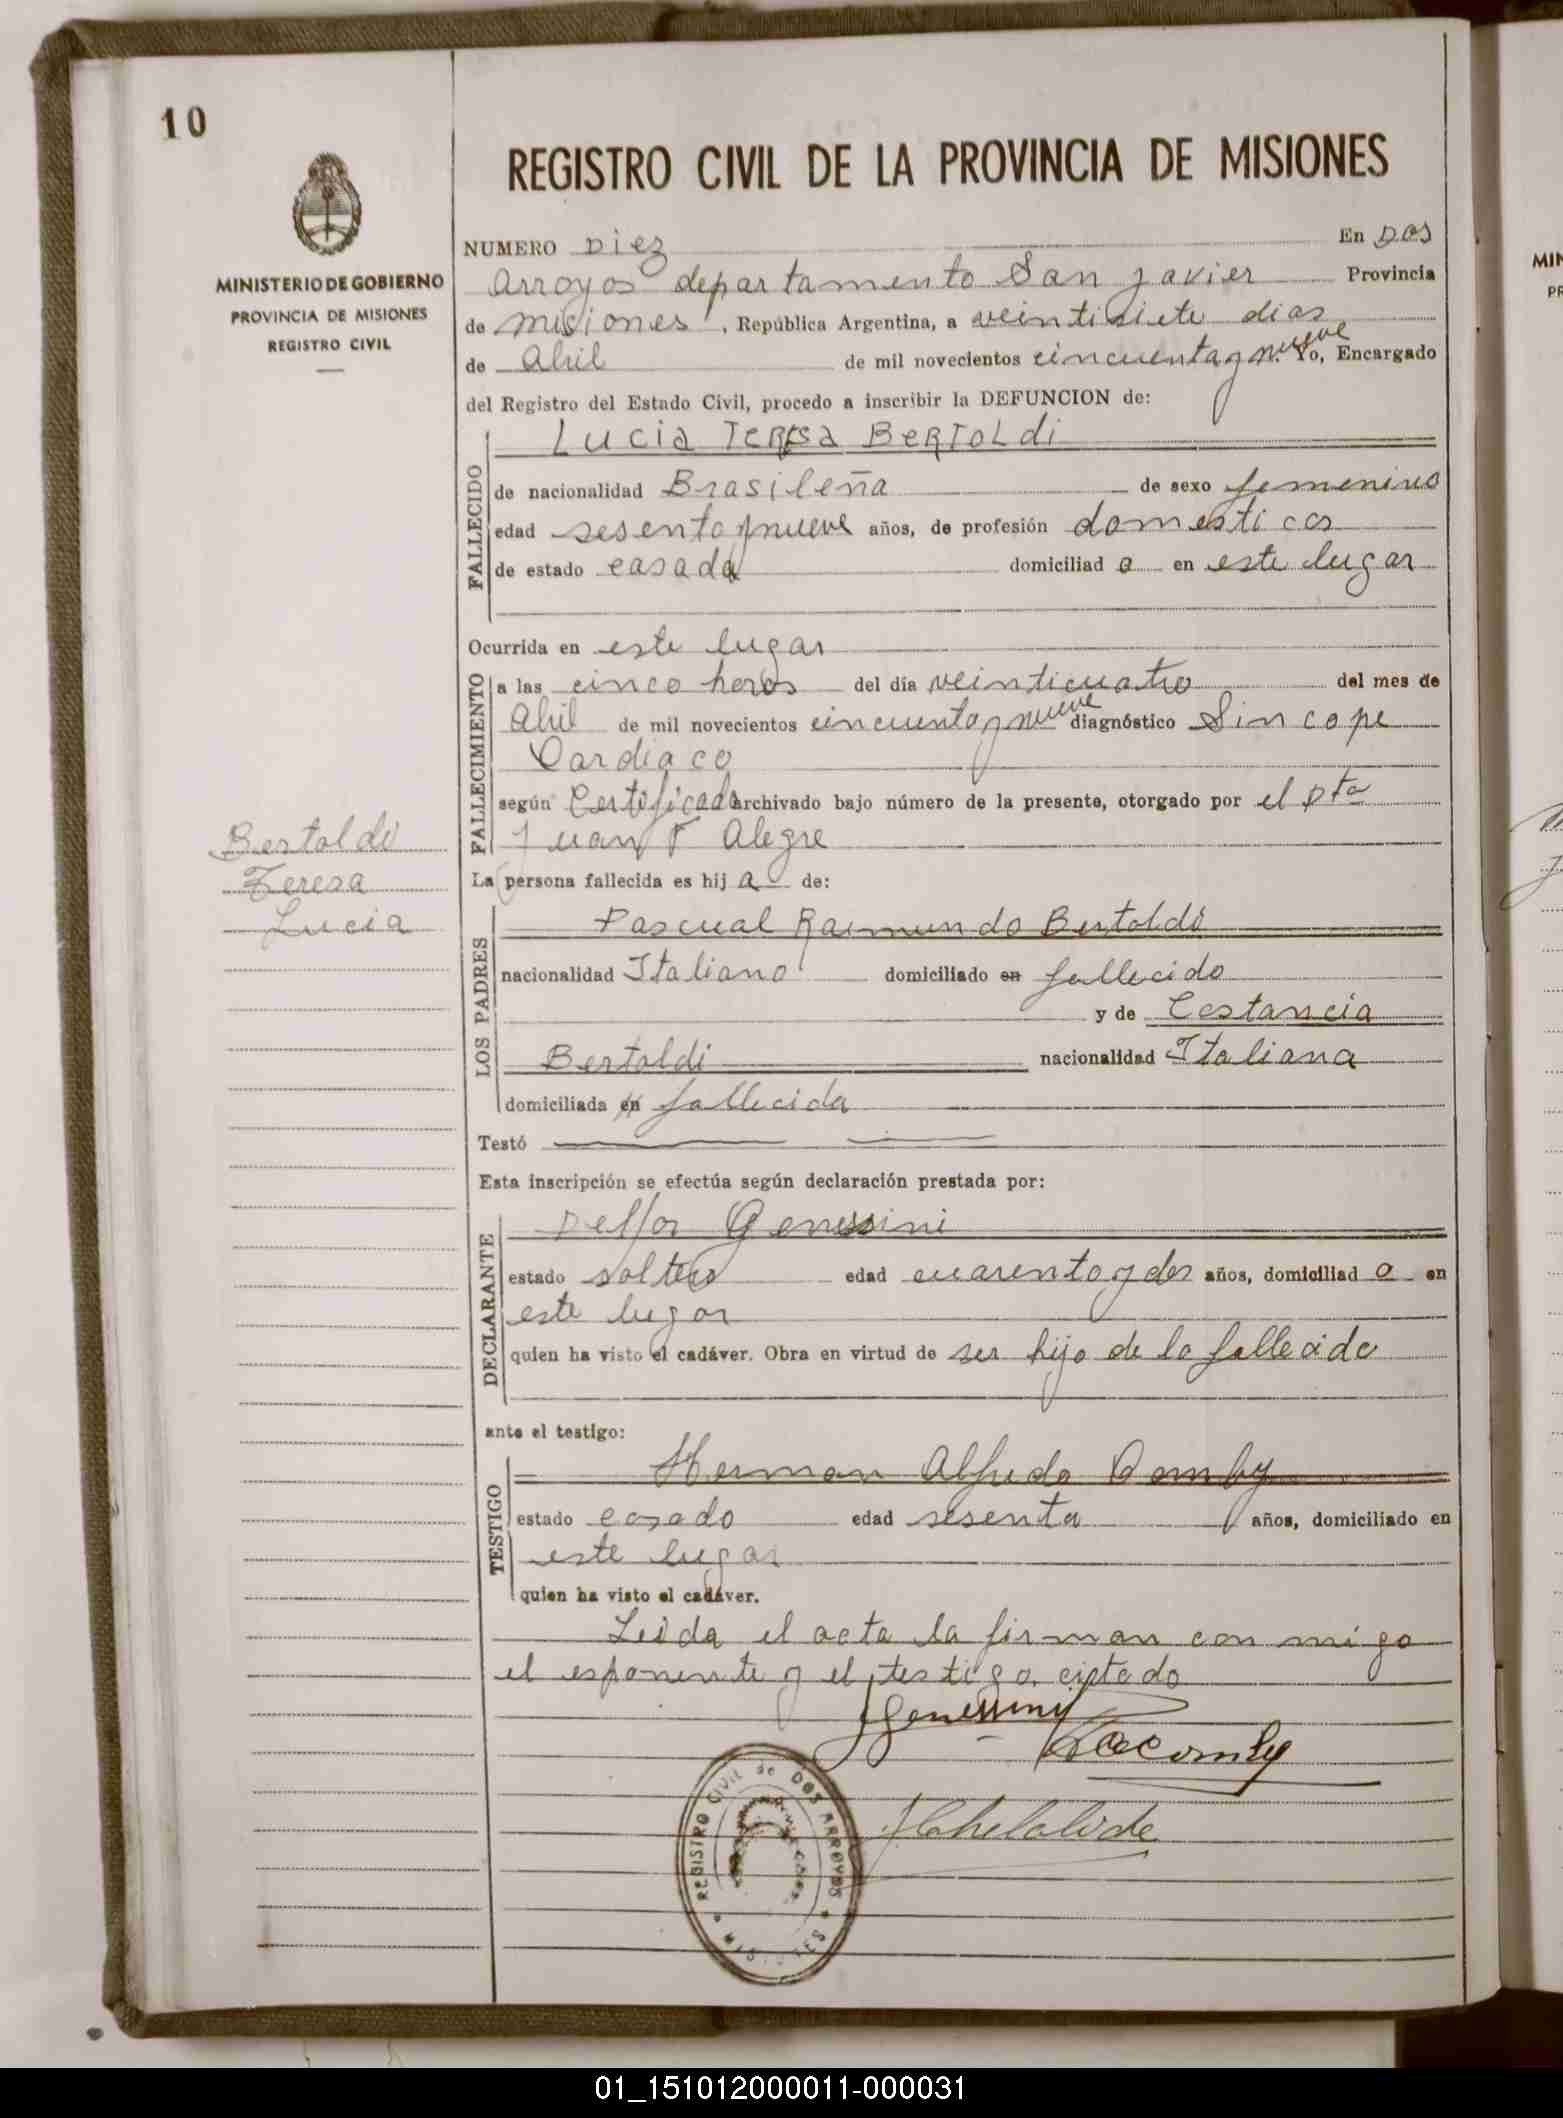 10
REGISTRO CIVIL DE LA PROVINCIA DE MISIONES
MINISTERIO DE GOBIERNO
PROVINCIA DE MISIONES
REGISTRO CIVIL
NUMERO Diez En Dos
Arroyos departamento San Javier Provincia
de Misiones, República Argentina, a veintisiete dias
de Abril de mil novecientos cincuenta y nueve. Yo, Encargado
del Registro del Estado Civil, procedo a inscribir la DEFUNCION de:
Lucia Teresa Bertoldi
FALLECIDO
de nacionalidad Brasileña de sexo femenino
edad sesenta y nueve años, de profesión domesticos
de estado casada domiciliad a en este lugar
Ocurrida en este lugar
FALLECIMIENTO
a las cinco horas del día veinticuatro del mes de
Abril de mil novecientos cincuenta y nueve diagnóstico Sincope
Cardiaco
según Certificado archivado bajo número de la presente, otorgado por el Dta
Juan F Alegre
Bertoldi
Teresa
Lucia
La persona fallecida es hij a de:
LOS PADRES
Pascual Raimundo Bertoldi
nacionalidad Italiano domiciliado en fallecido
y de Costancia
Bertoldi nacionalidad Italiana
domiciliada en fallecida
Testó
Esta inscripción se efectúa según declaración prestada por:
DECLARANTE
Delfor Genessini
estado soltero edad cuarenta y dos años, domiciliad o en
este lugar
quien ha visto el cadáver. Obra en virtud de ser hijo de la fallecida
ante el testigo:
TESTIGO
Herman Alfredo
estado casado edad sesenta años, domiciliado en
este lugar
quien ha visto el cadáver.
Leida el acta la firman con migo
el esponente y el testigo citado
Genessiny
REGISTRO CIVIL de DOS ARROYOS
MIN
PR
01_151012000011-000031